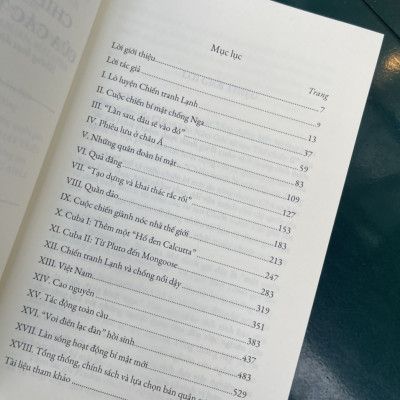 CHIẾ
CỦA CÁC
Mục lục
Trang
Lời giới thiệu 7
Lời tác giả 9
I. Lò luyện Chiến tranh Lạnh 13
II. Cuộc chiến bí mật chống Nga 37
III. "Lần sau, đầu sẽ vào đó" 59
IV. Phiêu lưu ở châu Á 83
V. Những quân đoàn bí mật 109
VI. Quả đắng 127
VII. "Tạo dựng và khai thác rắc rối" 153
VIII. Quần đảo 183
IX. Cuộc chiến giành nóc nhà thế giới 213
X. Cuba I: Thêm một "Hố đen Calcutta" 247
XI. Cuba II: Từ Pluto đến Mongoose 283
XII. Chiến tranh Lạnh và chống nổi dậy 319
XIII. Việt Nam 351
XIV. Cao nguyên 383
XV. Tác động toàn cầu 437
XVI. "Voi điên lạc đàn" hồi sinh 483
XVII. Làn sóng hoạt động bí mật mới 529
XVIII. Tổng thống, chính sách và lựa chọn bán quân
Tài liệu tham khảo